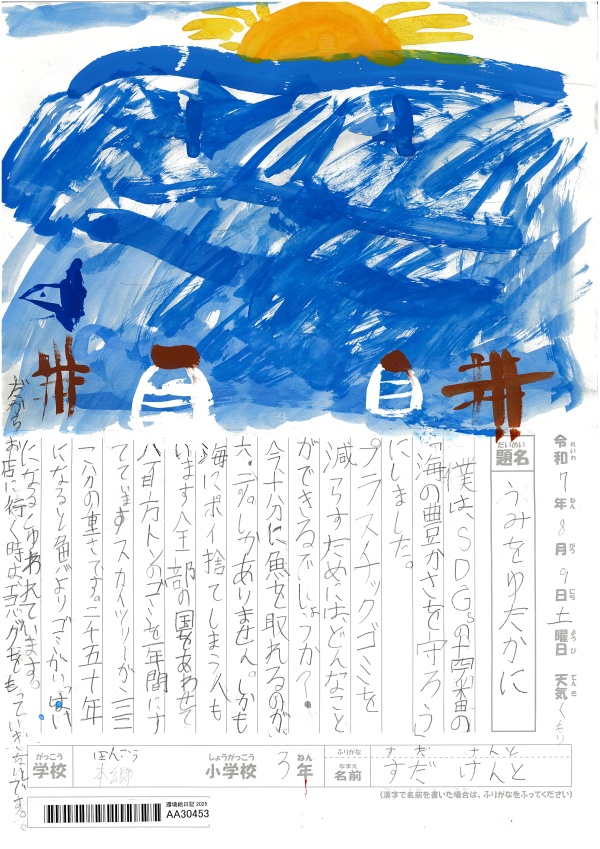 令和7年8月9日土曜日 天気くもり
れいわ ねん がつ にち ようび てんき
だいめい
題名 うみをゆたかに
僕はSDGsの十四番の
「海の豊かさを守ろう」
にしました。
プラスチックゴミを
減らすためにはどんなこと
ができるでしょうか?
今十分に魚を取れるのが、
しかありません。しかも
海にポイ捨てしまう人も
います全部の国をあわせて
八百万トンのゴミを一年間にす
てています。スカイツリーが二二
二分の重さです。二千五十年
になると魚がよりゴミがいっぱい
になるとゆわれています。
だからお店に行く時はエコバッグをもっていきたいです。
がっこう ほんごう しょうがっこう ねん
学校 本郷 小学校 3年
ふりがな すだ けんと
なまえ
名前 すだ けんと
(漢字で名前を書いた場合は、ふりがなをふってください)
環境絵日記 2025
AA30453